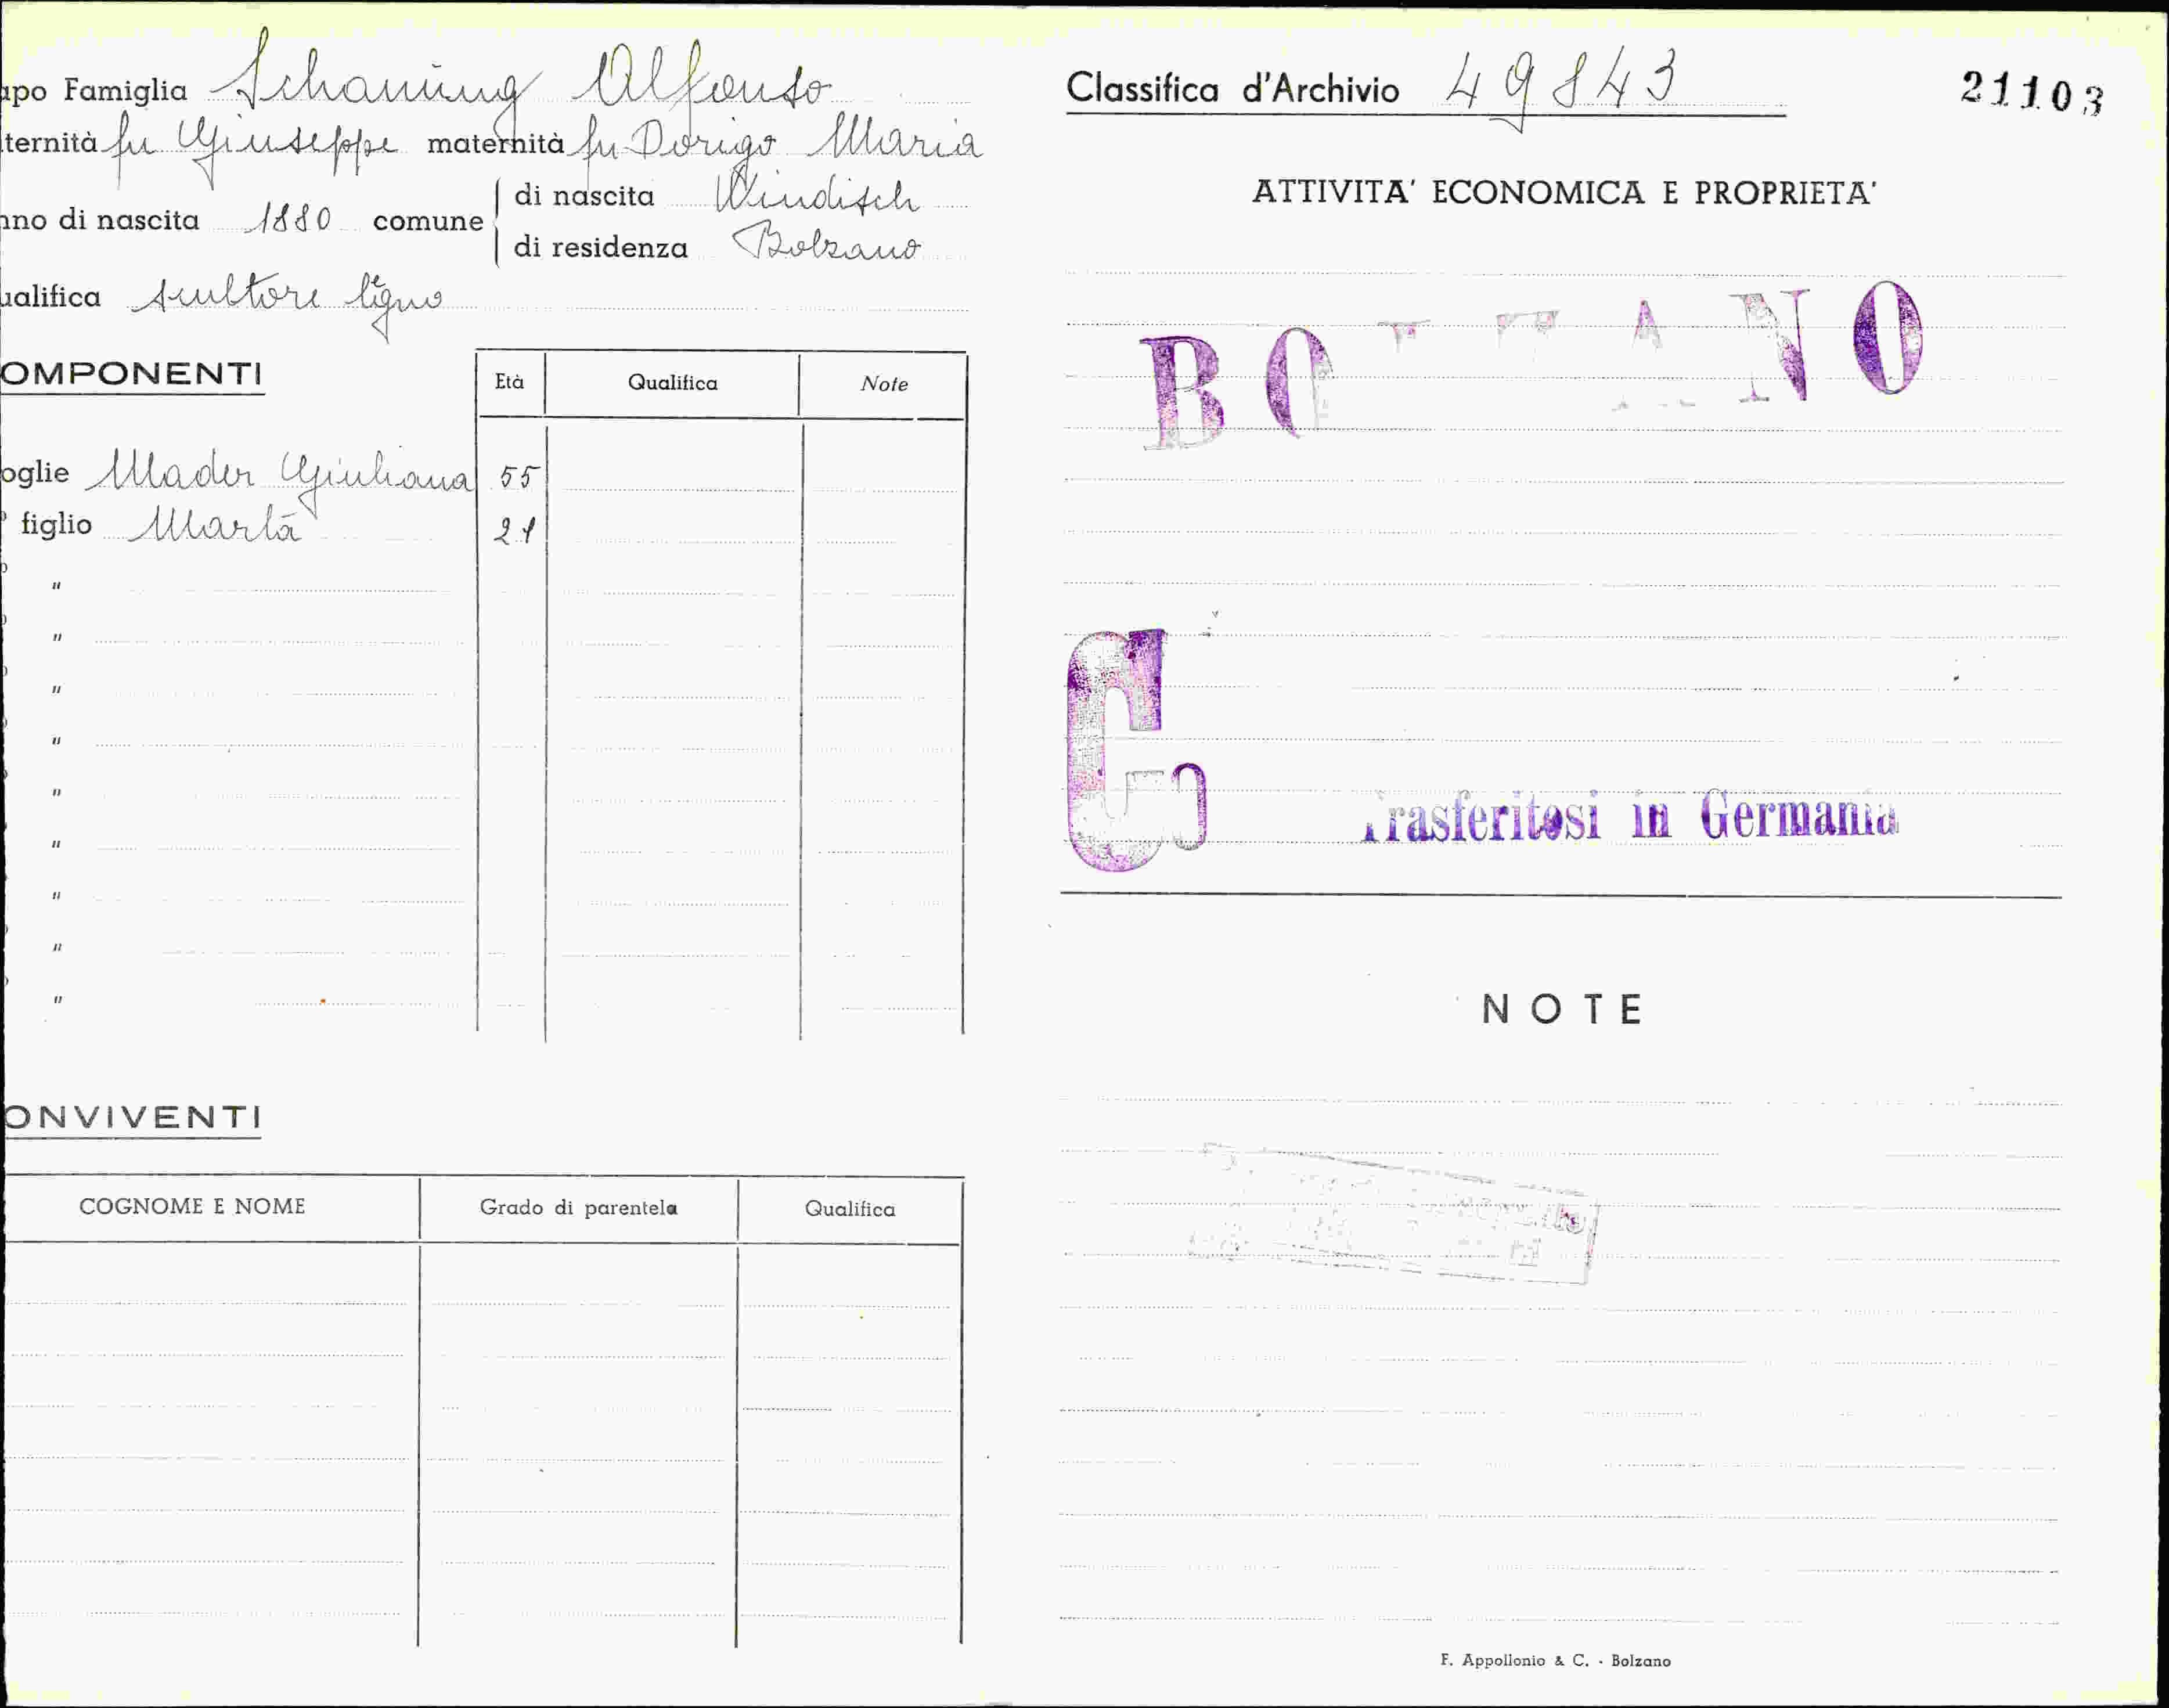 apo Famiglia Schanung Alfonso
ternità fu Giuseppe maternità fu Dorigo Maria
nno di nascita 1880 comune di nascita Windisch
di residenza Bolzano
ualifica scultore legno
OMPONENTI Età Qualifica Note
oglie Mader Giuliana 55
figlio Marta 21
"
"
"
"
"
"
"
"
"
ONVIVENTI
COGNOME E NOME Grado di parentela Qualifica
Classifica d'Archivio 49843 21103
ATTIVITA' ECONOMICA E PROPRIETA'
BOLZANO
C
rasferitosi in Germania
NOTE
F. Appollonio & C. - Bolzano